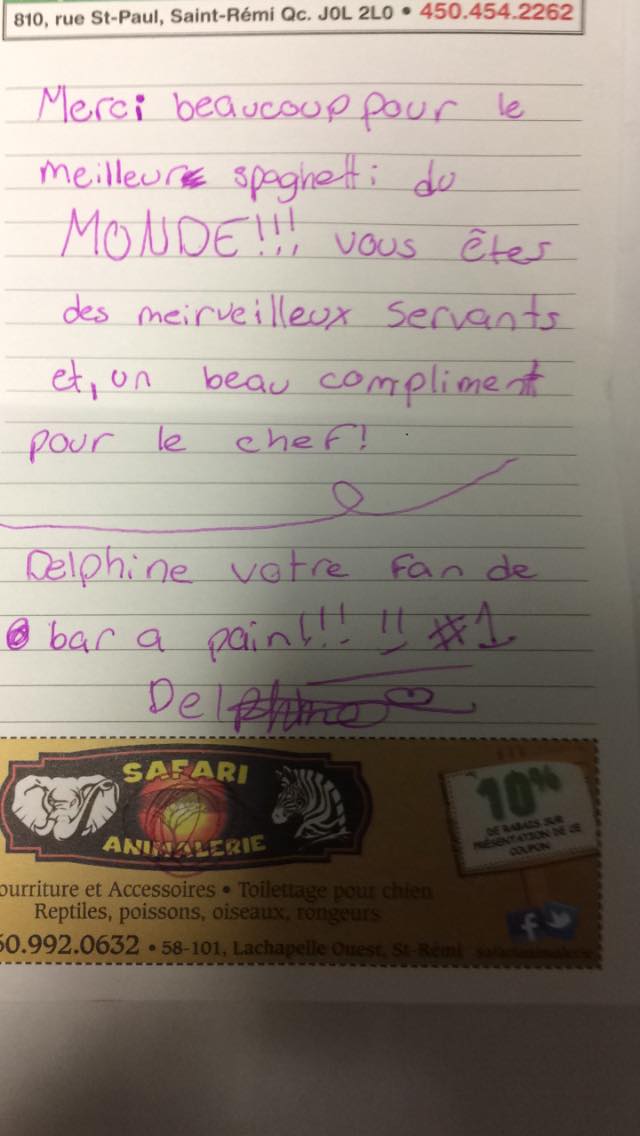 810, rue St-Paul, Saint-Rémi Qc. J0L 2L0 • 450.454.2262
Merci beaucoup pour le
meilleur spaghetti du
MONDE!!! vous êtes
des meirveilleux servants
et, un beau compliment
pour le chef!
Delphine votre fan de
bar a pain!!! !! #1
Delphine
SAFARI
ANIMALERIE
10%
DE RABAIS SUR
PRÉSENTATION DE CE
COUPON
ourriture et Accessoires • Toilettage pour chien
Reptiles, poissons, oiseaux, rongeurs
50.992.0632 • 58-101, Lachapelle Ouest, St-Rémi